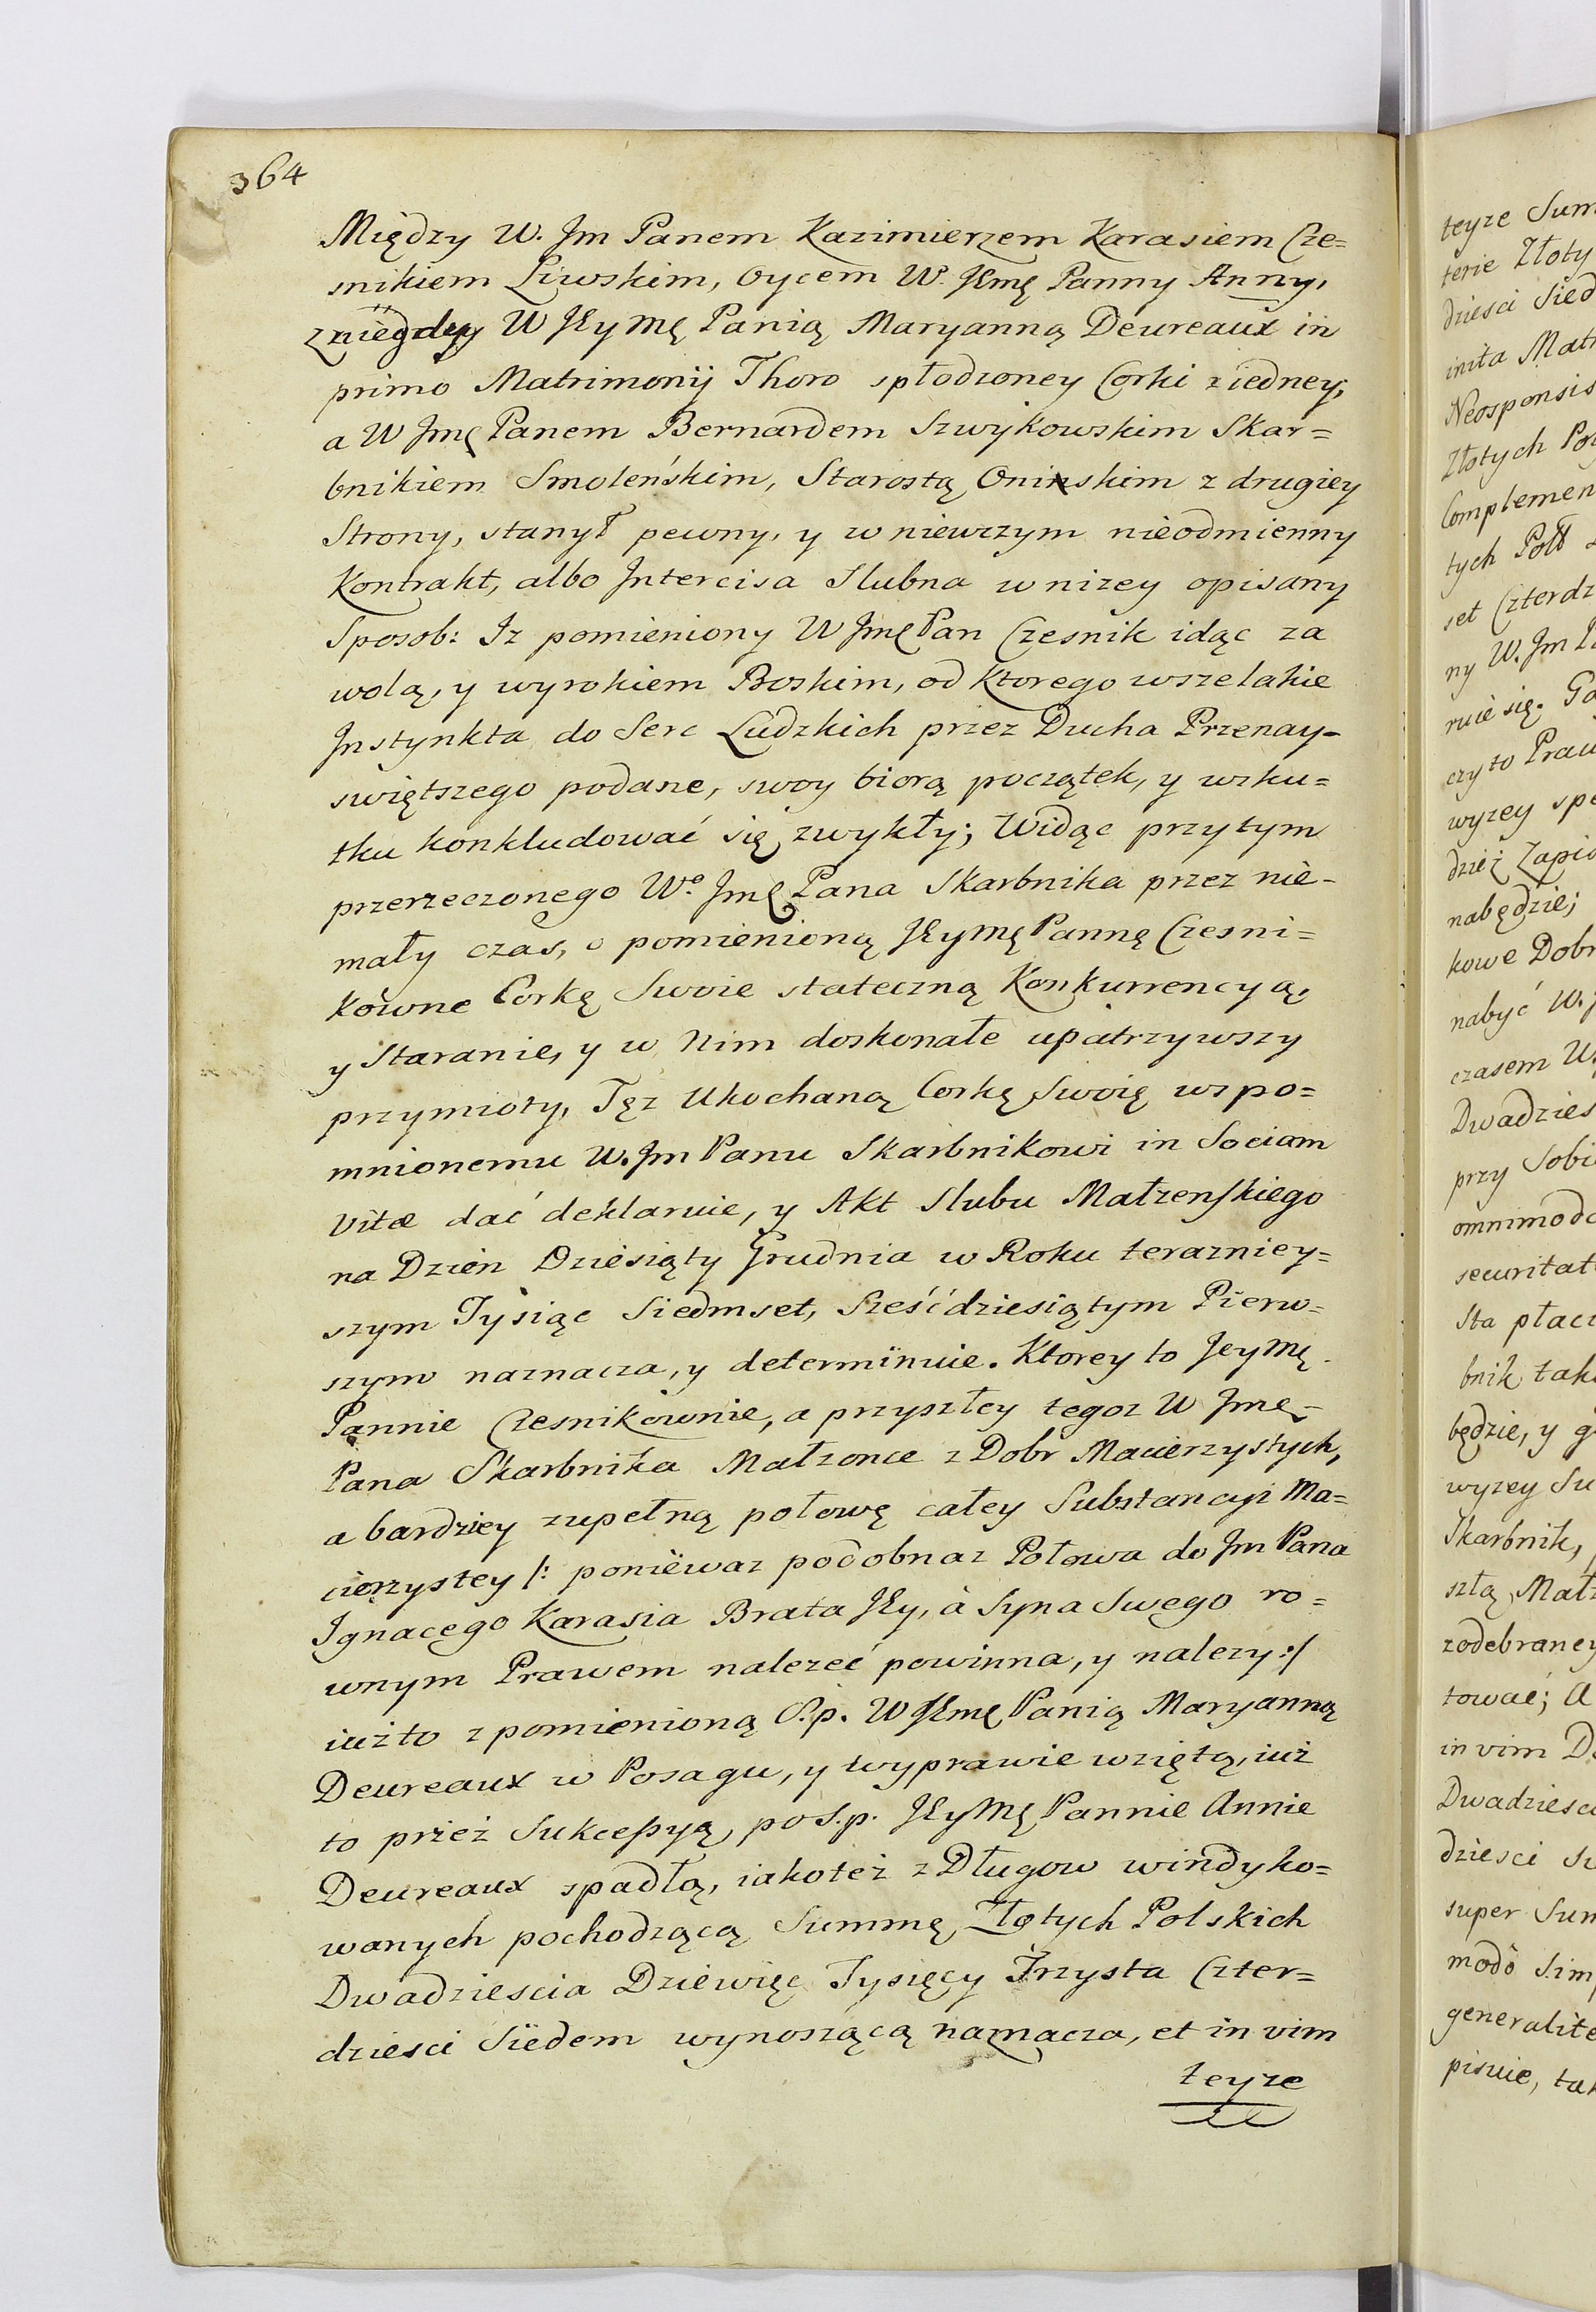 364
Między W. Jm Panem Kazimierzem Karasiem Cze=
snikiem Liwskim, Oycem W. JEmę Panny Anny,
z niegdy W JEy Mę Panią Maryanną Deureaux in
primo Matrimonij Thoro spłodzoney Corki z iedney;
a W Jmę Panem Bernardem Szwykowskim Skar=
bnikiem Smoleńskim, Starostą Oninskim z drugiey
Strony, stanył pewny, y w niewczym nieodmienny
Kontrakt, albo Intercisa Slubna w nizey opisany
Sposob: Iz pomieniony W Jmę Pan Czesnik idąc za
wolą, y wyrokiem Boskim, od Ktorego wszelakie
Instynkta do Serc Ludzkich przez Ducha Przenay=
swiętszego podane, swoy biorą początek, y wsku=
tku konkludować się zwykły; Widąc przytym
przerzeczonego Wo. Jmę Pana Skarbnika przez nie-
mały czas, o pomienioną JEymę Pannę Czesni=
kowne Corkę Swoie stateczną Konkurrencyą,
y Staranie, y w Nim doskonałe upatrzywszy
przymioty, Tęz Ukochaną Corkę Swoię wspo=
mnionemu W. Jm Panu Skarbnikowi in Sociam
Vitæ dać deklaruie, y Akt Slubu Małzenskiego
na Dzien Dziesiąty Grudnia w Roku terazniey=
szym Tysiąc Siedmset, Sześćdziesiątym Pierw=
szym naznacza, y determinuie. Ktorey to Jey Mę
Pannie Czesnikownie, a przyszłey tegoz W Jmę-
Pana Skarbnika Małzonce z Dobr Macierzystych,
a bardziey zupełną połowę całey Substancyi Ma=
cierzystey /: poniewaz podobnaz Połowa do Jm Pana
Ignacego Karasia Brata JEy, à Syna Swego ro=
wnym Prawem nalezeć powinna, y nalezy :/
iuż to z pomienioną S.p. W JEmę Panią Maryanną
Deureaux w Posagu, y wyprawie wziętą, iuż
to przez Sukcessyą po S.p. JEyMę Pannie Annie
Deureaux spadłą, iakoteż z Długow windyko=
wanych pochodzącą Summę Złotych Polskich
Dwadziescia Dziewięc Tysięcy Trzysta Czter=
dziesci Siedem wynoszącą naznacza, et in vim
teyze
teyze Sum
terie Złoty
dziesci Sied
inita Mat
Neosponsis
Złotych Pol
Complemen
tych Poll
set Czterdz
ny W. Jm P
ruie się. Go
czy to Praw
wyzey spe
dzież Zapis
nabędzie;
kowe Dobr
nabyć W. J
czasem W.
Dwadzies
przy Sobi
omnimodo
securitat
Sta płac
bnik tak
będzie, y g
wyzey Su
Skarbnik,
szłą Małz
zodebraney
tować; A
in vim D
Dwadziesc
dziesci S
super Sum
modò Sim
generalite
pisuie, tak